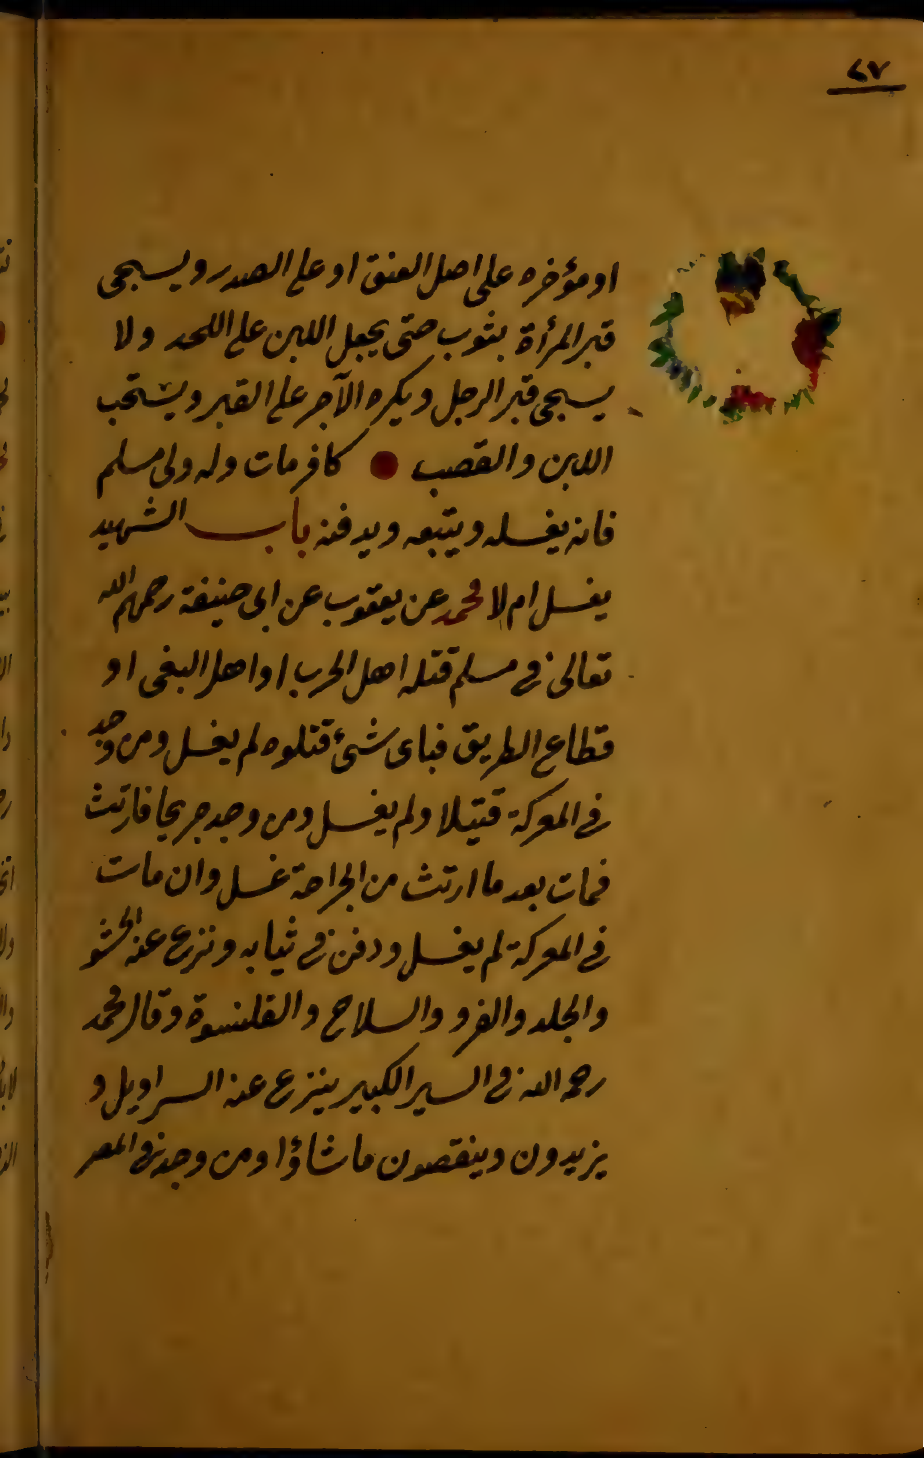 ٤٧
او مؤخره على اصل العنق او على الصدر ويسجى
قبر المرأة بثوب حتى يجعل اللبن على اللحد ولا
يسجى قبر الرجل ويكره الآجر على القبر ويستحب
اللبن والقصب ● كافر مات وله ولى مسلم
فانه يغسله ويتبعه ويدفنه باب الشهيد
يغسل ام لا محمد عن يعقوب عن ابى حنيفة رحمهم الله
تعالى فى مسلم قتله اهل الحرب او اهل البغى او
قطاع الطريق فباى شئ قتلوه لم يغسل ومن وجد
فى المعركة قتيلا ولم يغسل ومن وجد جريحا فارتث
فمات بعد ما ارتث من الجراحة غسل وان مات
فى المعركة لم يغسل ودفن فى ثيابه ونزع عنه الحشو
والجلد والفرو والسلاح والقلنسوة وقال محمد
رحمه الله فى السير الكبير ينزع عنه السراويل و
يزيدون وينقصون ما شاؤا ومن وجد فى المصر